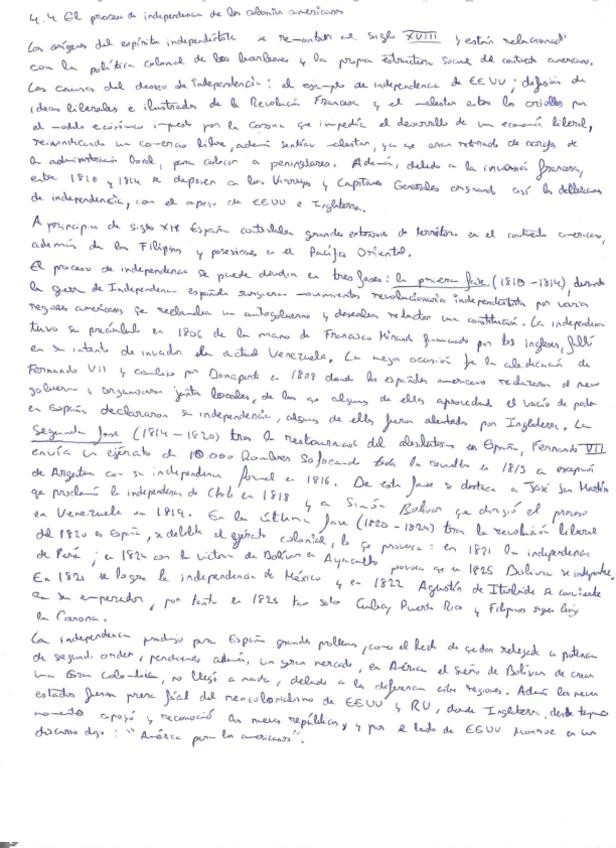 4.4 El proceso de independencia de las colonias americanas
Los orígenes del espíritu independentista se remontan al siglo XVIII y están relacionados
con la política colonial de los borbones y la propia estructura social del continente americano.
Las causas del deseo de independencia: el ejemplo de independencia de EEUU; difusión de
ideas liberales e ilustradas de la Revolución Francesa y el malestar entre los criollos por
el modelo económico impuesto por la Corona que impedía el desarrollo de una economía liberal,
reivindicando un comercio libre, además sentían malestar, ya que eran retirado de cargos de
la administración local, para colocar a peninsulares. Además, debido a la invasión francesa,
entre 1810 y 1814 se deponen a los Virreyes y Capitanes Generales originando así las
de independencia, con el apoyo de EEUU e Inglaterra.
A principios de siglo XIX España controlaba grandes extensiones de territorio en el continente americano,
además de las Filipinas y posesiones en el Pacífico Oriental.
El proceso de independencia se puede dividir en tres fases: la primera fase (1810-1814), durante
la guerra de Independencia española surgieron movimientos revolucionario independentista por varias
regiones americanas que reclamaban un autogobierno y deseaban redactar una constitución. La independencia
tuvo su preámbulo en 1806 de la mano de Francisco Miranda financiado por los ingleses, falló
en su intento de invadir la actual Venezuela. La mejor ocasión fue la abdicación de
Fernando VII y cambio por Bonaparte en 1808 donde los españoles americanos rechazaron el nuevo
gobierno y organizaron junta locales, de las que algunas de ellas aprovechando el vacío de poder
en España declararon su independencia, algunas de ellas fueron alentadas por Inglaterra. La
Segunda fase (1814-1820) tras la restauración del absolutismo en España, Fernando VII
envía un ejército de 10000 hombres sofocando toda la revuelta en 1815 a excepción
de Argentina con su independencia formal en 1816. De esta fase se destaca a José San Martín
que proclamó la independencia de Chile en 1818 y a Simón Bolívar que dirigió el proceso
en Venezuela en 1819. En la última fase (1820-1824) tras la revolución liberal
del 1820 en España, se debilita el ejército colonial, lo que provoca: en 1821 la independencia
de Perú; en 1824 con la victoria de Bolívar en Ayacucho provoca que en 1825 Bolivia se independice.
En 1821 se logra la independencia de México y en 1822 Agustín de Iturbide se convierte
en su emperador, por tanto en 1825 tan solo Cuba, Puerto Rico y Filipinas siguen bajo
la Corona.
La independencia produjo para España grandes problemas, como el hecho de quedar relegada a potencia
de segundo orden, perdiendo además, un gran mercado, en América el sueño de Bolívar de crear
una Gran Colombia, no llegó a nada, debido a la diferencia entre regiones. Además los nuevos
estados fueron presa fácil del neocolonialismo de EEUU y RU, donde Inglaterra, desde
momento apoyó y reconoció las nuevas repúblicas, y por el lado de EEUU Monroe en un
discurso dijo: "América para los americanos".